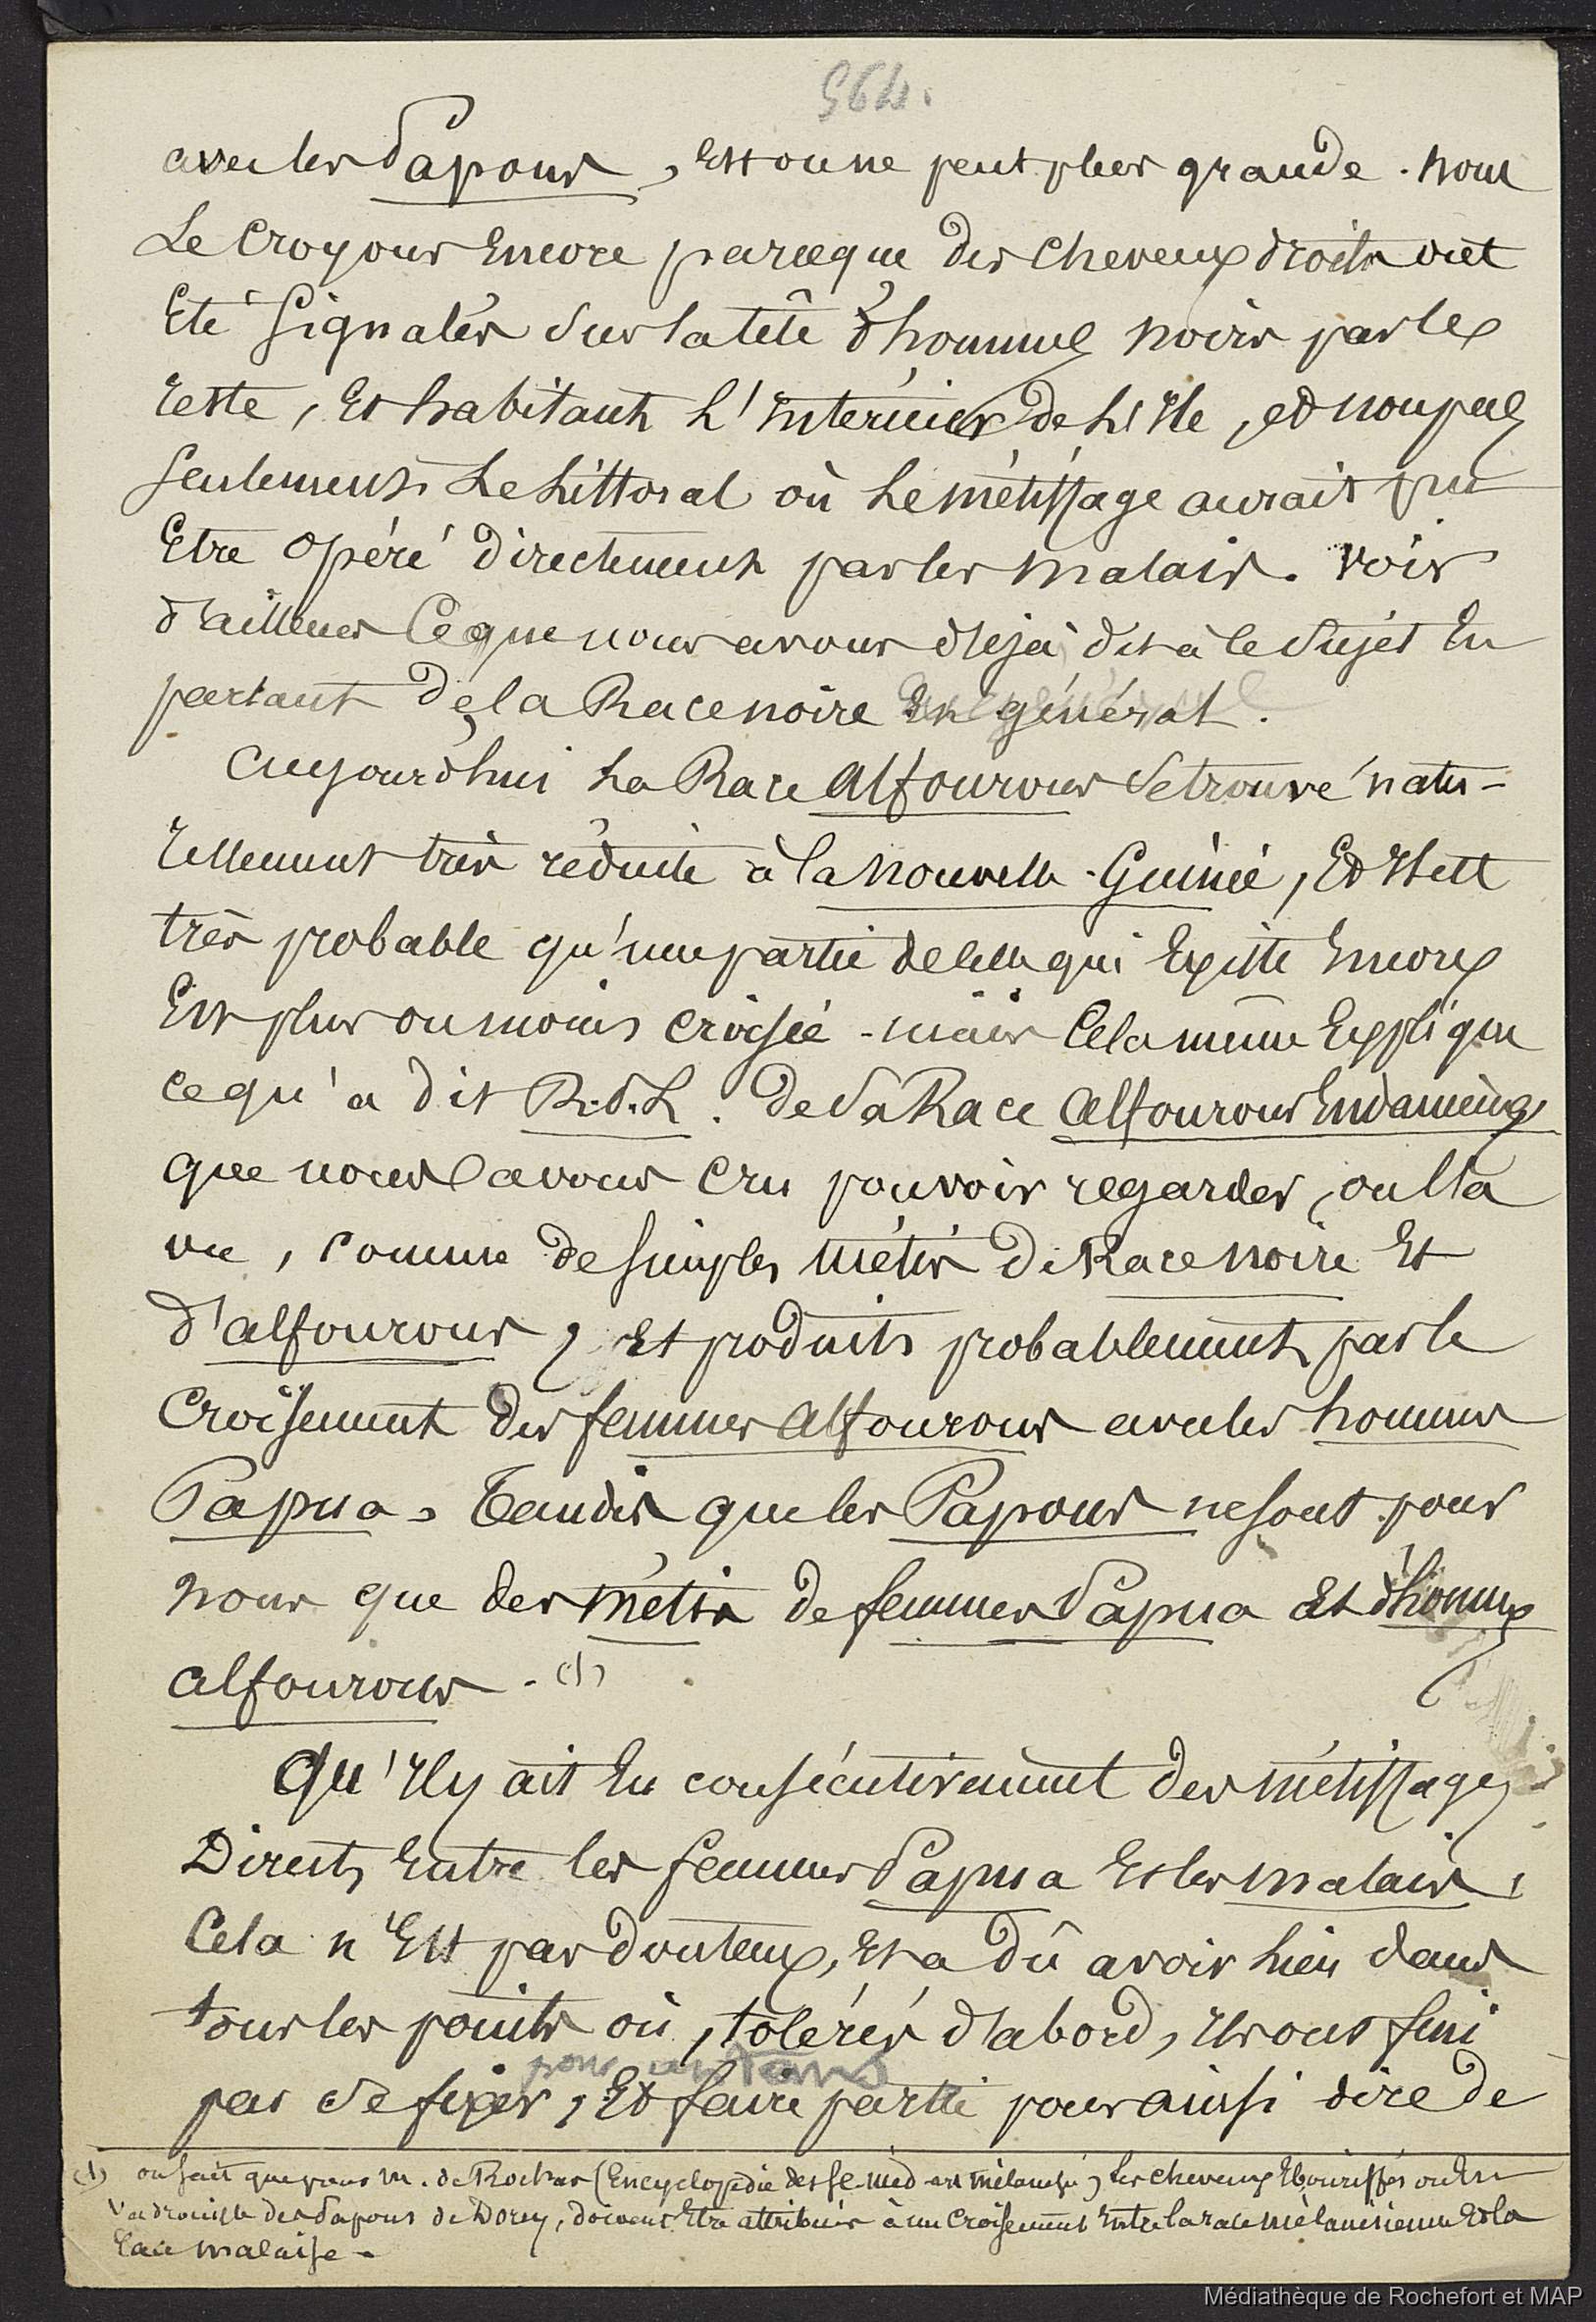 564.
avec les Papous, est on ne peut plus grande. Nous
le croyons encore parceque des cheveux droits ont
été signalés sur la tête d'hommes noirs par le
reste, et habitant l'interieur de l'ile, et non pas
seulement le littoral où le métissage aurait pu
être opéré directement par les malais. Voir
d'ailleurs ce que nous avons déjà dit à ce sujet en
parlant de la Race noire en général.
Aujourd'hui la Race Alfourous se trouve natu-
rellement très réduite à la Nouvelle-Guinée, et il est
très probable qu'une partie de celle qui existe encore
est plus ou moins croisée - mais cela même explique
ce qu'a dit R.P.L. de sa Race Alfourous Endamène
que nous avons cru pouvoir regarder, on l'a
vu, comme de simples métis de Race noire et
d'alfourous, et produits probablement par le
croisement des femmes Alfourous avec les hommes
Papua, tandis que les Papous ne sont pour
nous que des métis de femmes Papua et d'hommes
alfourous. (1)
Qu'il y ait eu consécutivement des métissages
directs entre les femmes Papua et les malais,
cela n'est pas douteux, et a dû avoir lieu dans
tous les points où, tolérés d'abord, ils ont fini
pour un tems
par se fixer, et faire partie pour ainsi dire de
(1) on sait que pour M. de Rochas (Encyclopédie des sc. méd. art mélanésie), les cheveux ébouriffés ou en
vadrouille des Papous de Dorey, doivent être attribués à un croisement entre la race mélanésienne et la
race malaise -
Médiathèque de Rochefort et MAP